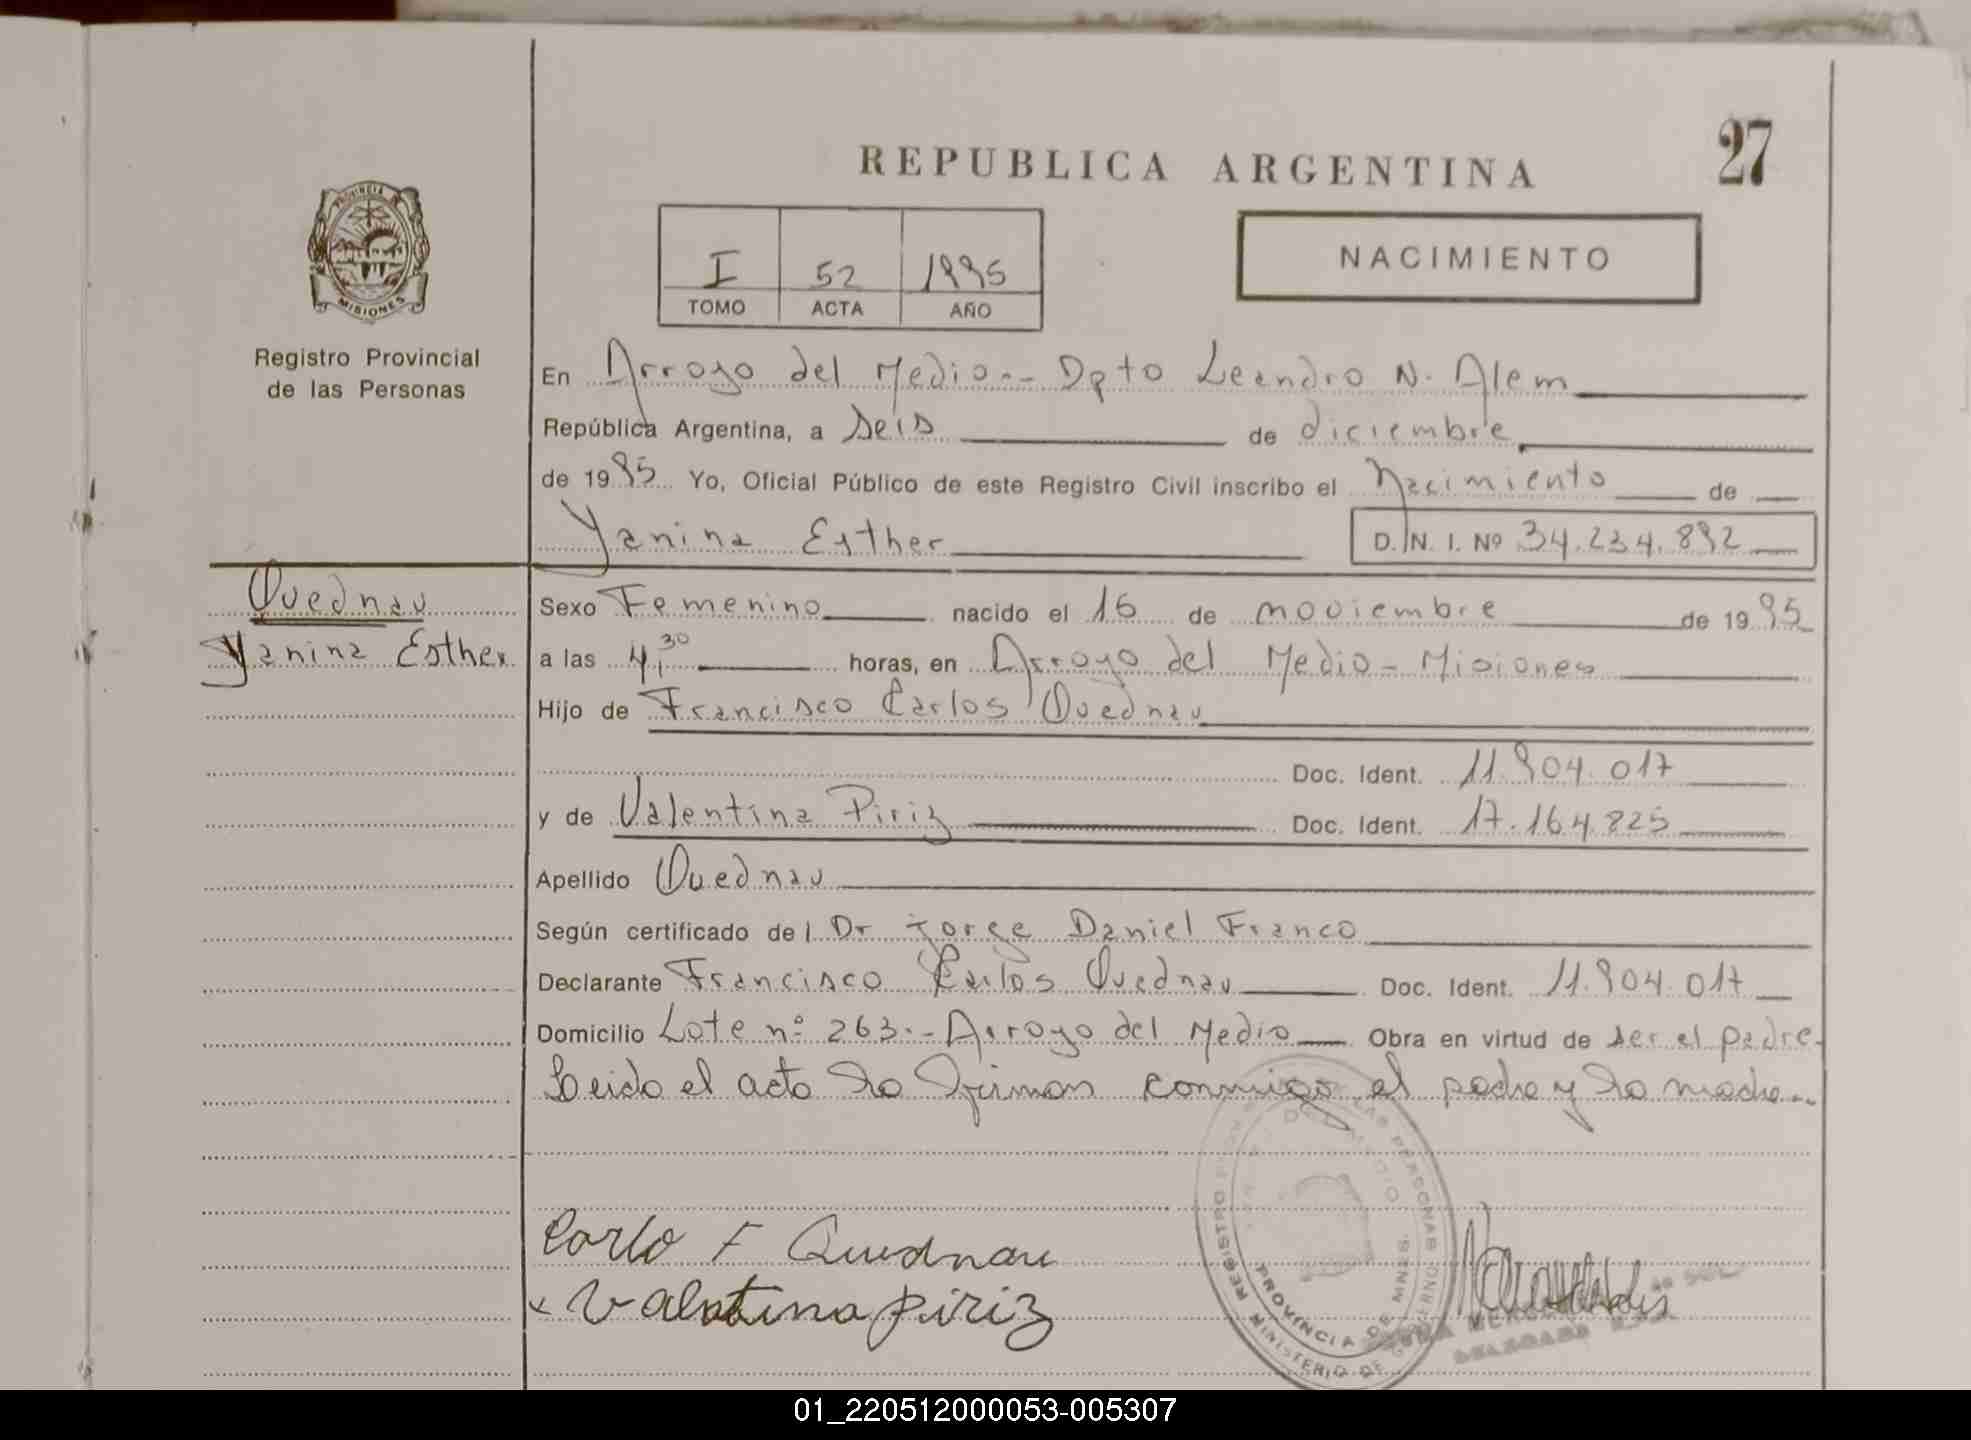 REPUBLICA ARGENTINA
27
PROVINCIA DE
MISIONES
Registro Provincial
de las Personas
I 52 1995
TOMO ACTA AÑO
NACIMIENTO
En Arroyo del Medio.- Dpto Leandro N. Alem
República Argentina, a seis de diciembre
de 1995 Yo, Oficial Público de este Registro Civil inscribo el Nacimiento de
Yanina Esther D. N. I. Nº 34.234.892
Quednau
Yanina Esther
Sexo Femenino nacido el 16 de noviembre de 1995
a las 4,30 horas, en Arroyo del Medio - Misiones
Hijo de Francisco Carlos Quednau
Doc. Ident. 11.904.017
y de Valentina Piriz Doc. Ident. 17.164.825
Apellido Quednau
Según certificado del Dr Jorge Daniel Franco
Declarante Francisco Carlos Quednau Doc. Ident. 11.904.017
Domicilio Lote nº 263.- Arroyo del Medio Obra en virtud de ser el padre.
Leido el acta la firman conmigo el padre y la madre..
Carlo F Quednau
x Valentina piriz
REGISTRO DE LAS PERSONAS
PROVINCIA DE MNES.
MINISTERIO DE GOBIERNO
01_220512000053-005307